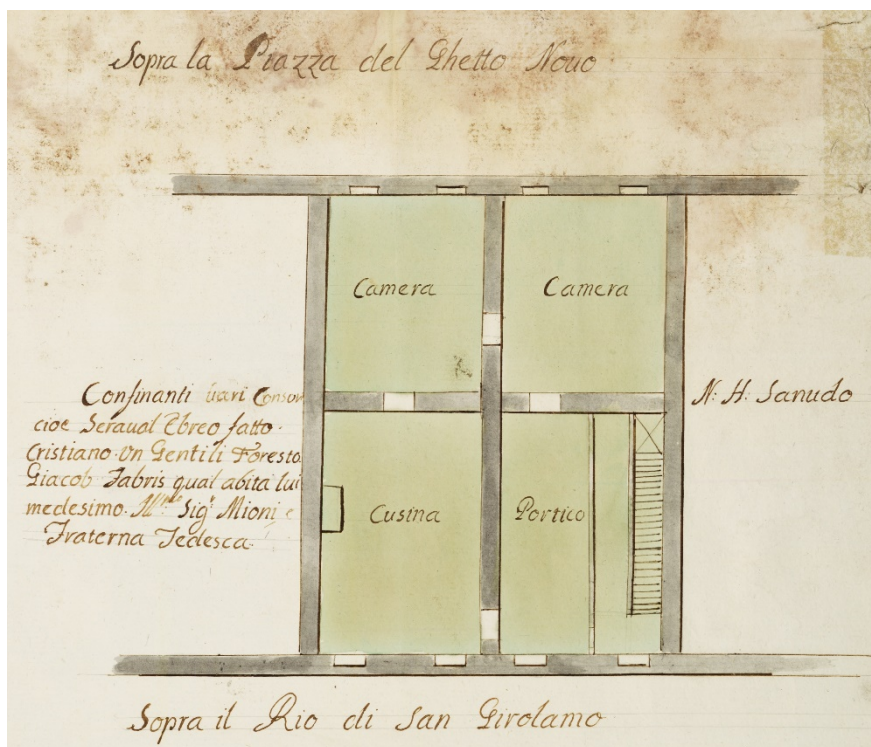 Sopra la Piazza del Ghetto Nouo
Camera
Camera
Confinanti uari Consor
cioe Seraual Ebreo fatto
Cristiano. Un Gentili Foresto
Giacob Fabris qual abita lui
medesimo. Sigr Mioni e
Fraterna Tedesca.
N: H: Sanudo
Cusina
Portico
Sopra il Rio di San Girolamo